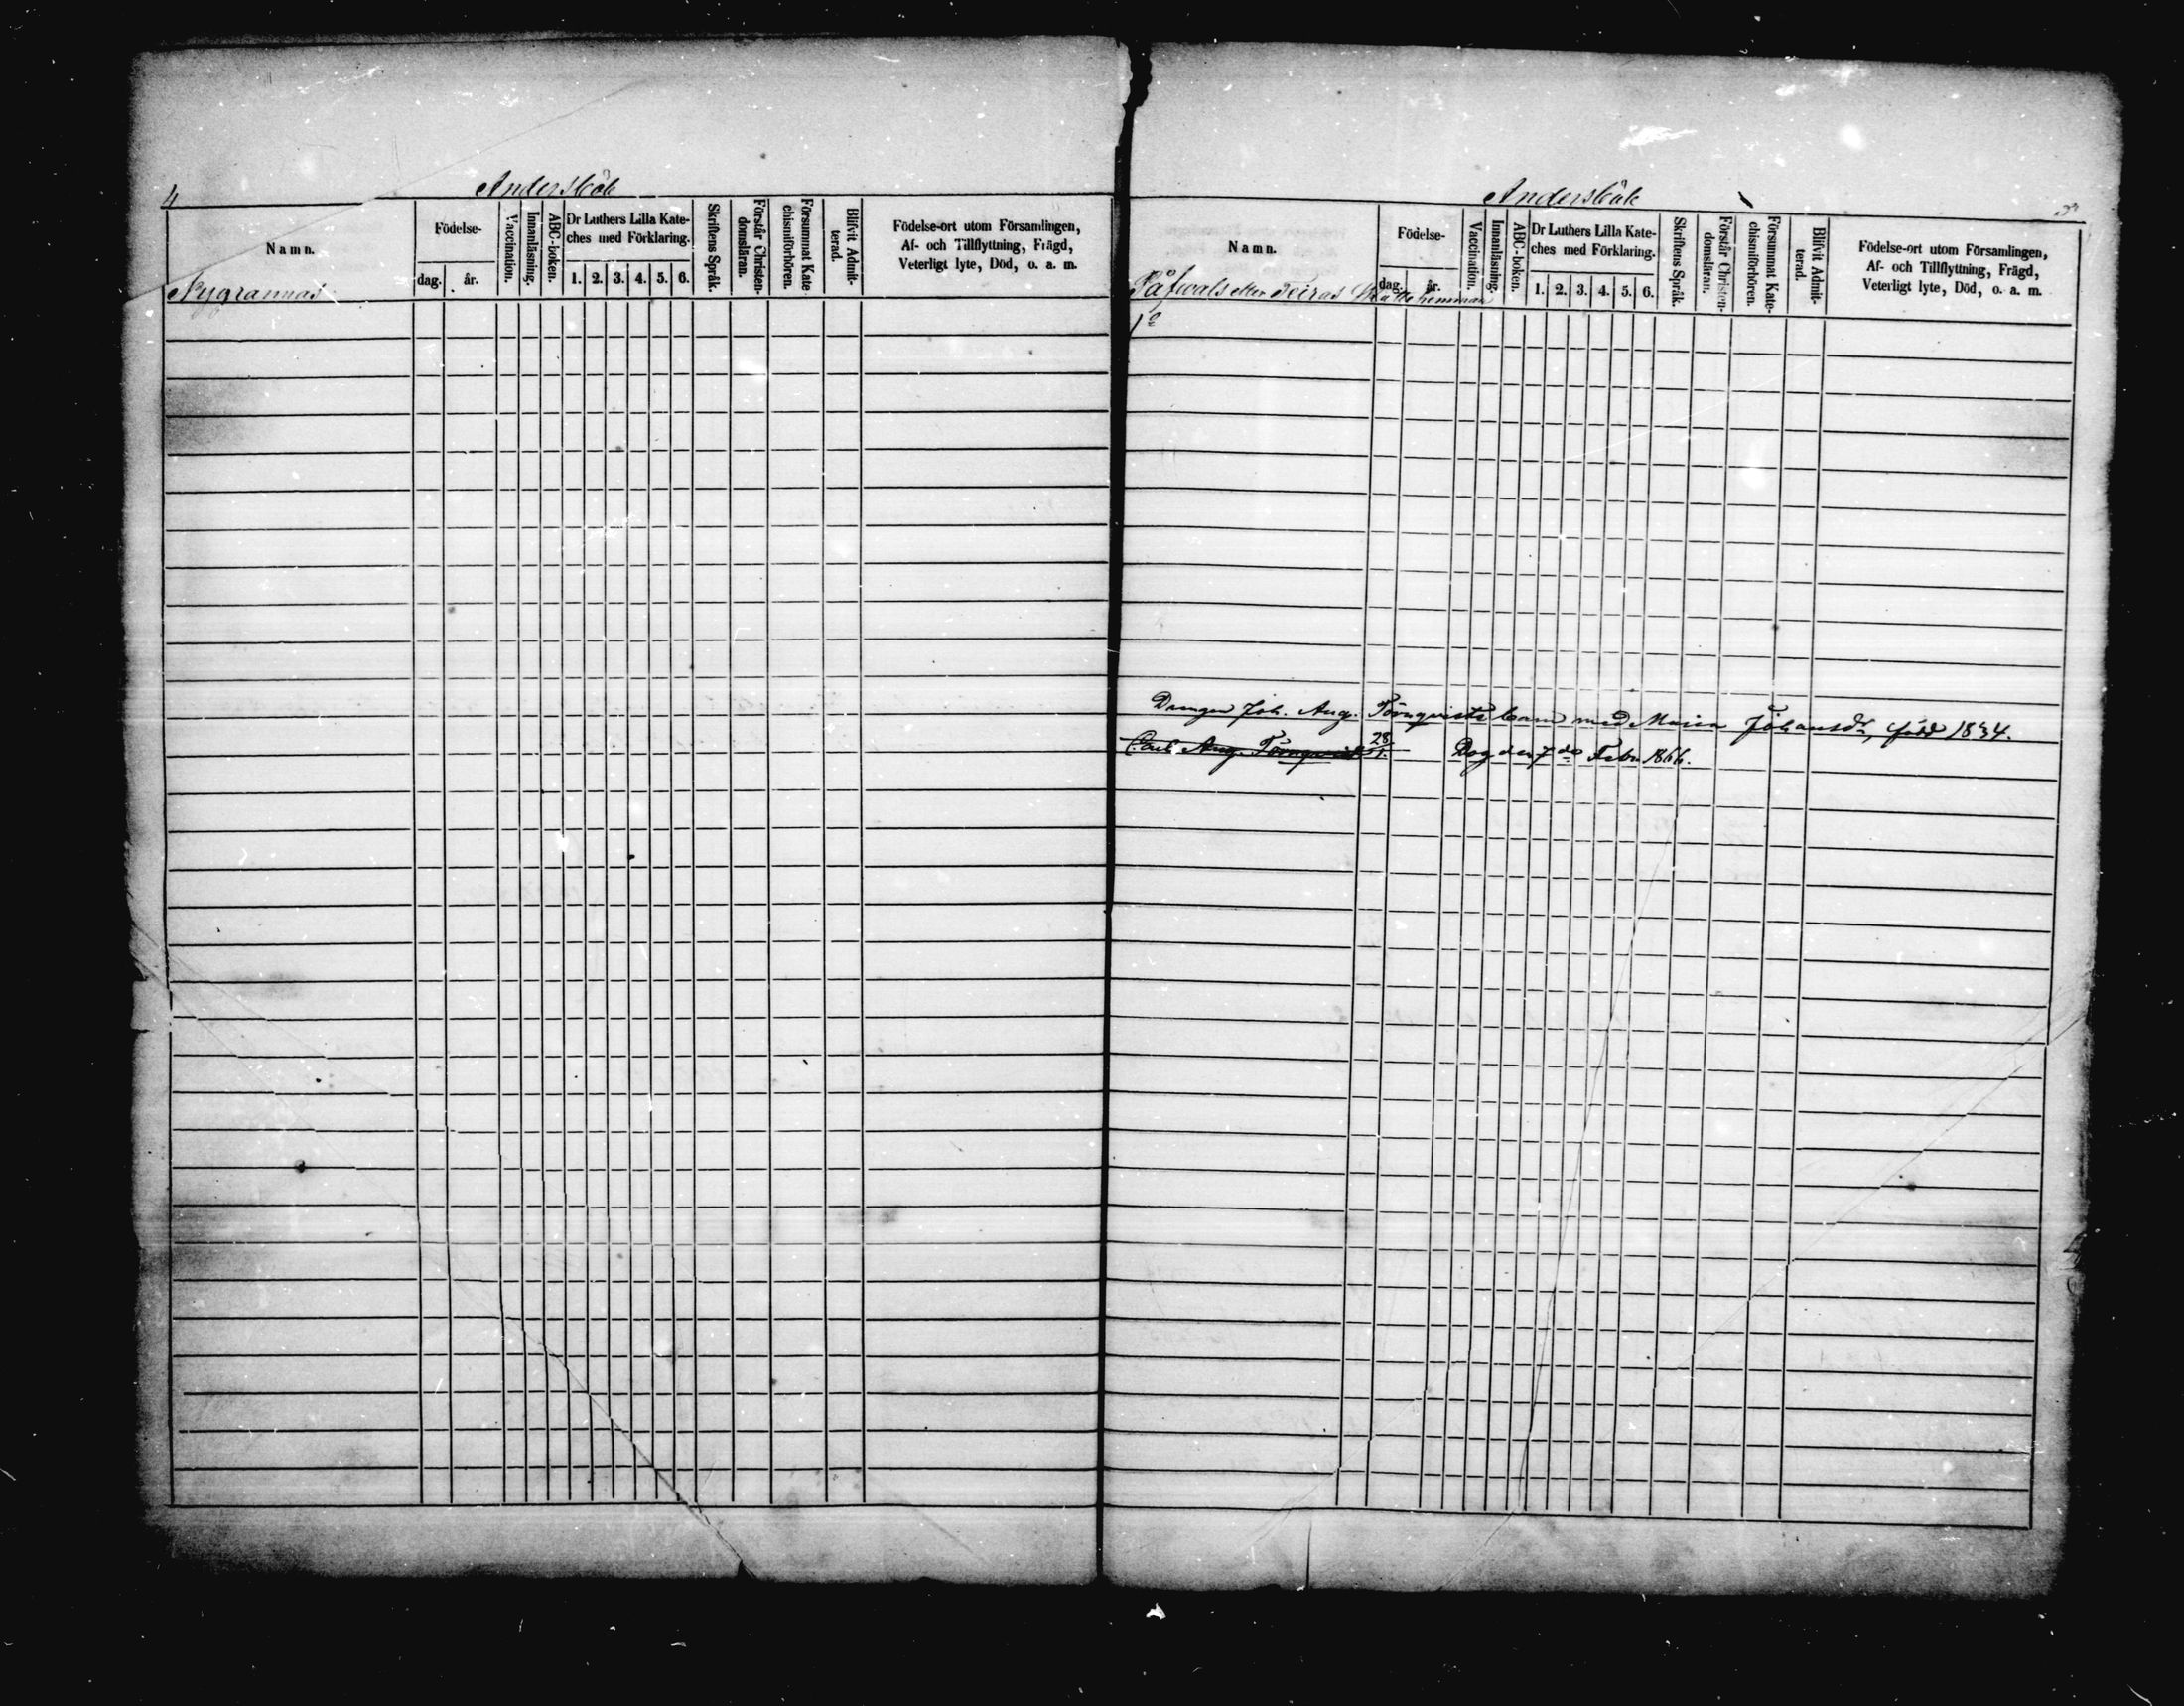 4
Andersböle
Namn.
Födelse-
dag.
år.
Vaccination.
Innanläsning.
ABC-boken.
Dr Luthers Lilla Kate-
ches med Förklaring.
1. 2. 3. 4. 5. 6.
Skriftens Språk.
Förstår Christen-
domsläran.
Försummat Kate-
chismiförhören.
Blifvit Admit-
terad.
Födelse-ort utom Församlingen,
Af- och Tillflyttning, Frägd,
Veterligt lyte, Död, o. a. m.
Nygrannas
Andersböle
5
Namn.
Födelse-
dag.
år.
Vaccination.
Innanläsning.
ABC-boken.
Dr Luthers Lilla Kate-
ches med Förklaring.
1. 2. 3. 4. 5. 6.
Skriftens Språk.
Förstår Christen-
domsläran.
Försummat Kate-
chismiförhören.
Blifvit Admit-
terad.
Födelse-ort utom Församlingen,
Af- och Tillflyttning, Frägd,
Veterligt lyte, Död, o. a. m.
Påfvals eller hemman
Drengen Joh. Aug. Törnqvists barn med Maria Johansdr, född 1834.
Carl Aug. Törnqvist 28/1. Dog den 7de Febr. 1866.